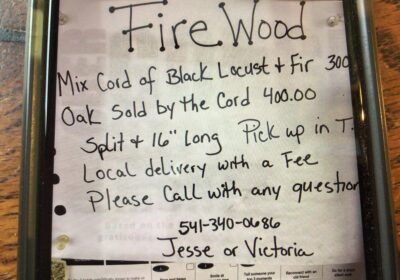 Fire Wood
Mix Cord of Black Locust + Fir 300
Oak Sold by the Cord 400.00
Split + 16" Long Pick up in T.
Local delivery with a Fee
Please Call with any question
541-340-0686
Jesse or Victoria
Smile
Tell someone
Reconnect with an